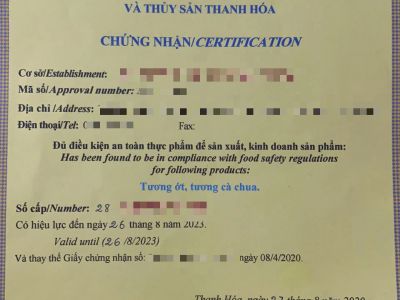 VÀ THỦY SẢN THANH HÓA
CHỨNG NHẬN/CERTIFICATION
Cơ sở/Establishment:
Mã số/Approval number:
Địa chỉ /Address:
Điện thoại/Tel: 0 Fax:
Đủ điều kiện an toàn thực phẩm để sản xuất, kinh doanh sản phẩm:
Has been found to be in compliance with food safety regulations
for following products:
Tương ớt, tương cà chua.
Số cấp/Number: 28
Có hiệu lực đến ngày 26 tháng 8 năm 2023.
Valid until (26/8/2023)
Và thay thế Giấy chứng nhận số: ngày 08/4/2020.
Thanh Hóa, ngày 27 tháng 8 năm 2020